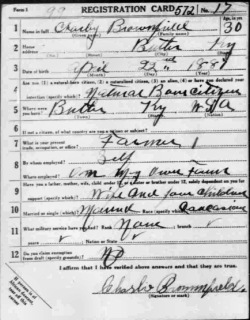 Form 1
REGISTRATION CARD 572 No. 17
1 Name in full Charly Brownfield Age, in yrs. 30
(Given name) (Family name)
2 Home address Butler Ky
3 Date of birth April 22nd 188
(Month) (Day) (Year)
4 Are you (1) a natural-born citizen, (2) a naturalized citizen, (3) an alien, (4) or have you declared your intention (specify which)? Natural Born Citizen
5 Where were you born? Butler Ky USA
6 If not a citizen, of what country are you a citizen or subject?
7 What is your present trade, occupation, or office? Farmer
8 By whom employed? Self
Where employed? On My Own Farm
9 Have you a father, mother, wife, child under 12, or a sister or brother under 12, solely dependent on you for support (specify which)? Wife And Four Children
10 Married or single (which)? Married Race (specify which)? Caucasian
11 What military service have you had? Rank None ; branch
years Nation or State
12 Do you claim exemption from draft (specify grounds)? No
I affirm that I have verified above answers and that they are true.
Charlie Brownfield
(Signature or mark)